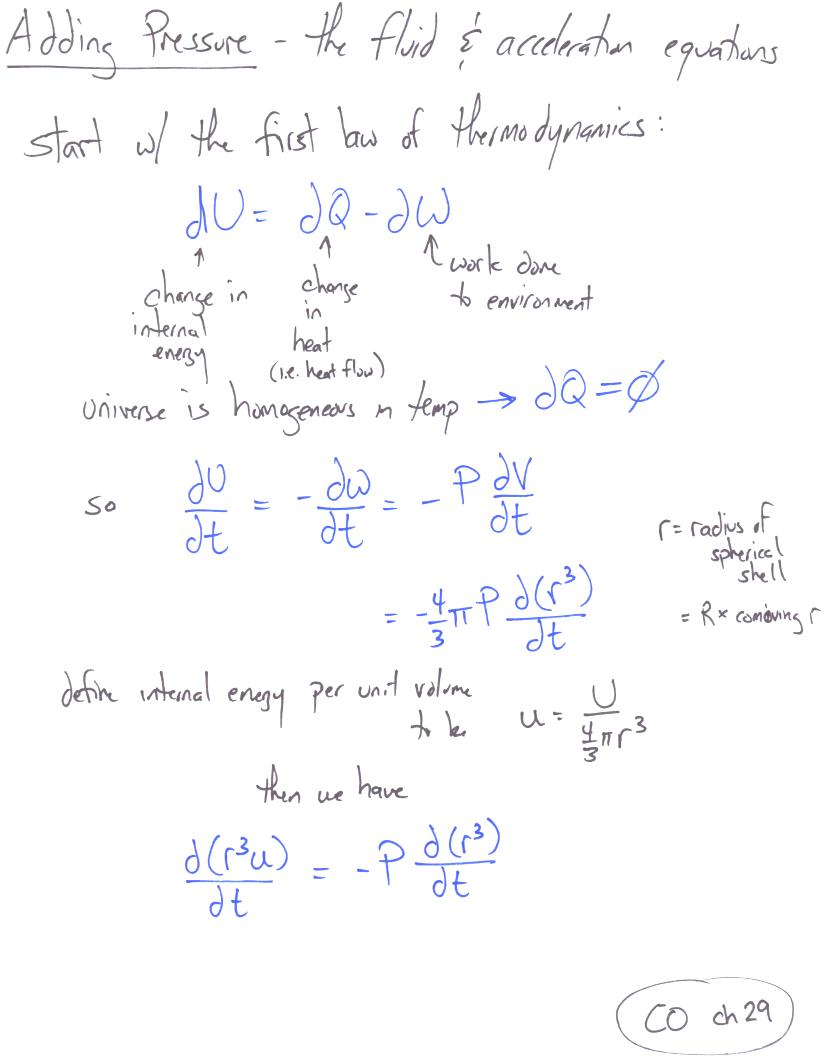 Adding Pressure - the fluid & acceleration equations
start w/ the first law of thermodynamics:
dU = dQ - dW
↑ change in internal energy
↑ change in heat (i.e. heat flow)
↑ work done to environment
universe is homogeneous in temp → dQ = ∅
so dU/dt = - dW/dt = - P dV/dt
r = radius of spherical shell
= R × comoving r
= -4/3 π P d(r³)/dt
define internal energy per unit volume to be u = U / (4/3 π r³)
then we have
d(r³u)/dt = - P d(r³)/dt
CO ch 29